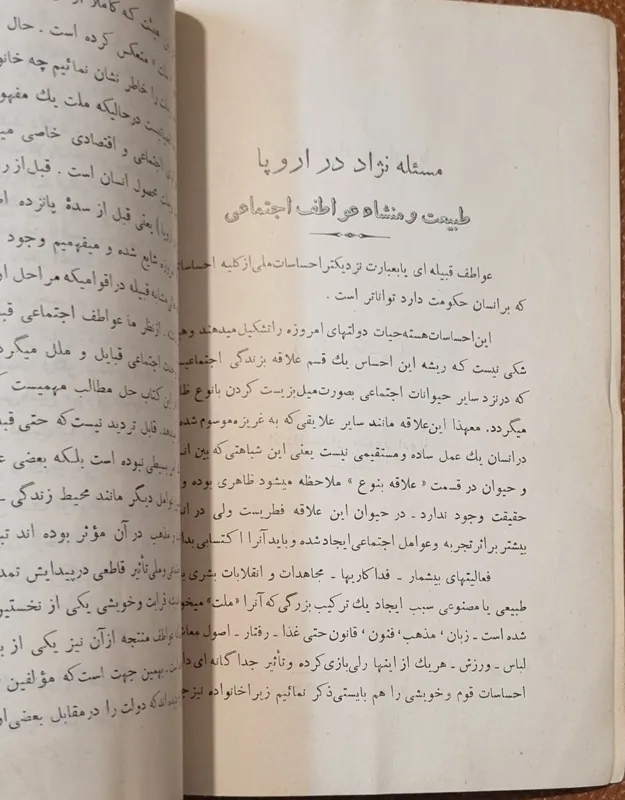 مسئله نژاد در اروپا
طبیعت و منشاء عواطف اجتماعی
عواطف قبیله ای یا بعبارت نزدیکتر احساسات ملی از کلیه احساسات
که بر انسان حکومت دارد تواناتر است .
این احساسات هسته حیات دولتهای امروزه را تشکیل میدهند و
شکی نیست که ریشه این احساس یك قسم علاقه بزندگی
که در نزد سایر حیوانات اجتماعی بصورت میل بزیست کردن با نوع
میگردد. معهذا این علاقه مانند سایر علایقی که به غریزه موسوم شده
در انسان یك عمل ساده و مستقیمی نیست یعنی این شباهتی که بین
و حیوان در قسمت « علاقه بنوع » ملاحظه میشود ظاهری بوده و
حقیقت وجود ندارد ـ در حیوان این علاقه فطریست ولی در
بیشتر بر اثر تجربه و عوامل اجتماعی ایجاد شده و باید آنرا اکتسابی
فعالیتهای بیشمار ـ فداکاریها ـ مجاهدات و انقلابات بشری
طبیعی یا مصنوعی سبب ایجاد یك ترکیب بزرگی که آنرا «ملت»
شده است ـ زبان ، مذهب ، فنون ، قانون حتی غذا ـ رفتار ـ اصول
لباس ـ ورزش ـ هر یك از اینها رلی بازی کرده و تأثیر جداگانه ای
احساسات قوم و خویشی را هم بایستی ذکر نمائیم زیرا خانواده نیز
که کاملا
منعکس کرده است . حال
را خاطر نشان نمائیم چه
درحالیکه ملت یك
اجتماعی و اقتصادی خاصی
محصول انسان است . قبل از
یعنی قبل از سدهٔ پانزده
شایع شده و میفهمیم وجود
مشابه قبیله در اقوامیکه مراحل
از نظر ما عواطف اجتماعی
اجتماعی قبایل و ملل
این کتاب حل مطالب مهمیست
قابل تردید نیست که حتی
بسیطی نبوده است بلکه بعضی
عوامل دیگر مانند محیط زندگی ـ
مذهب در آن مؤثر بوده اند
و ملی تأثیر قاطعی در پیدایش
قرابت و خویشی یکی از
عواطف منتجه از آن نیز یکی از
بهمین جهت است که مؤلفین
که دولت را در مقابل بعضی